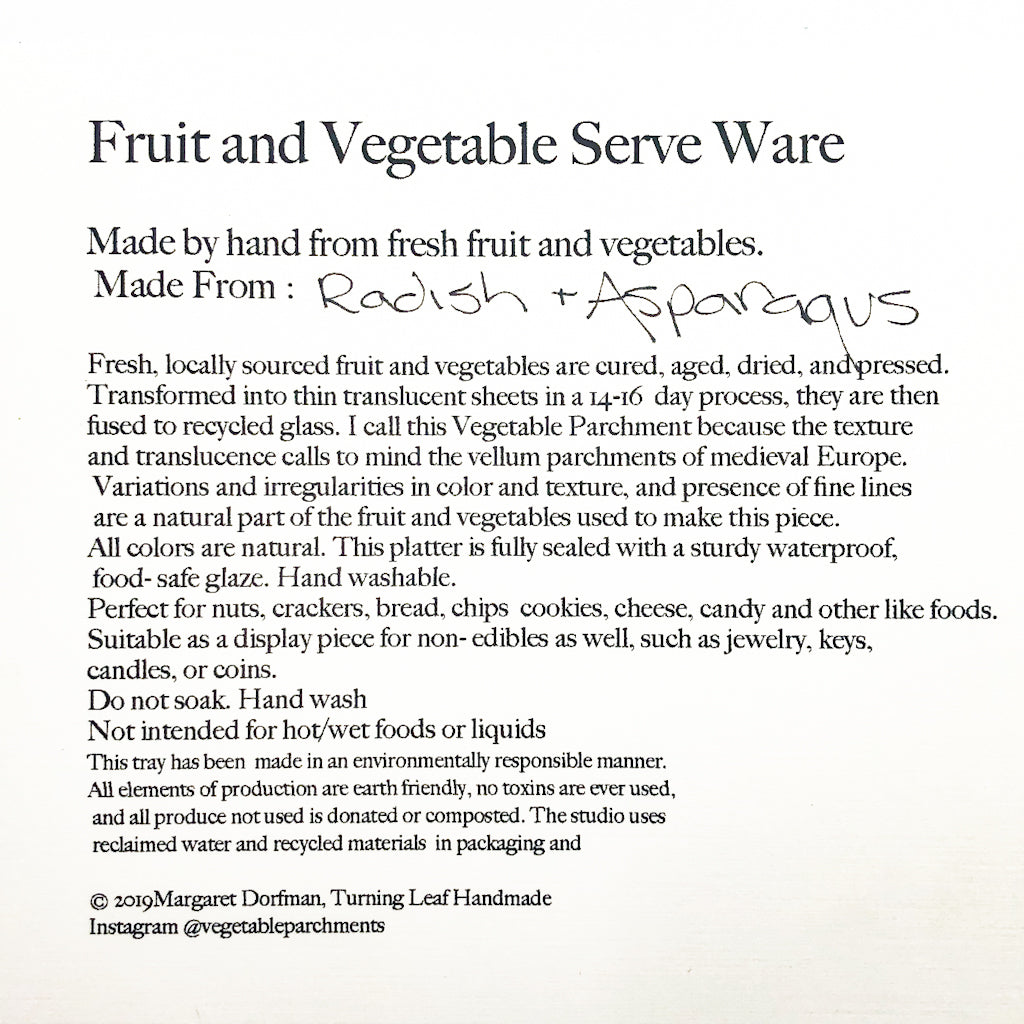 Fruit and Vegetable Serve Ware
Made by hand from fresh fruit and vegetables.
Made From : Radish + Asparagus
Fresh, locally sourced fruit and vegetables are cured, aged, dried, and pressed.
Transformed into thin translucent sheets in a 14-16 day process, they are then
fused to recycled glass. I call this Vegetable Parchment because the texture
and translucence calls to mind the vellum parchments of medieval Europe.
Variations and irregularities in color and texture, and presence of fine lines
are a natural part of the fruit and vegetables used to make this piece.
All colors are natural. This platter is fully sealed with a sturdy waterproof,
food- safe glaze. Hand washable.
Perfect for nuts, crackers, bread, chips cookies, cheese, candy and other like foods.
Suitable as a display piece for non- edibles as well, such as jewelry, keys,
candles, or coins.
Do not soak. Hand wash
Not intended for hot/wet foods or liquids
This tray has been made in an environmentally responsible manner.
All elements of production are earth friendly, no toxins are ever used,
and all produce not used is donated or composted. The studio uses
reclaimed water and recycled materials in packaging and
© 2019Margaret Dorfman, Turning Leaf Handmade
Instagram @vegetableparchments